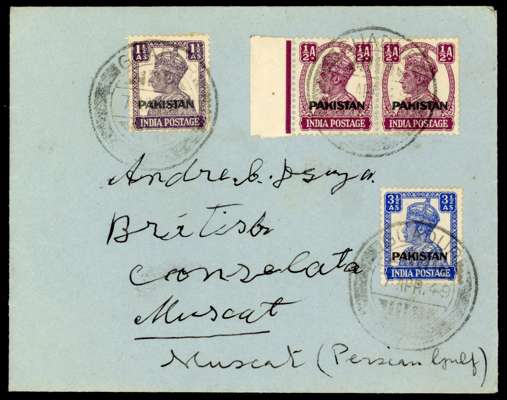 1½ 1½
AS AS
PAKISTAN
INDIA POSTAGE
½A ½A
PAKISTAN
INDIA POSTAGE
½A ½A
PAKISTAN
INDIA POSTAGE
3½ 3½
AS AS
PAKISTAN
INDIA POSTAGE
British
Consulate
Muscat
Muscat (Persian Gulf)